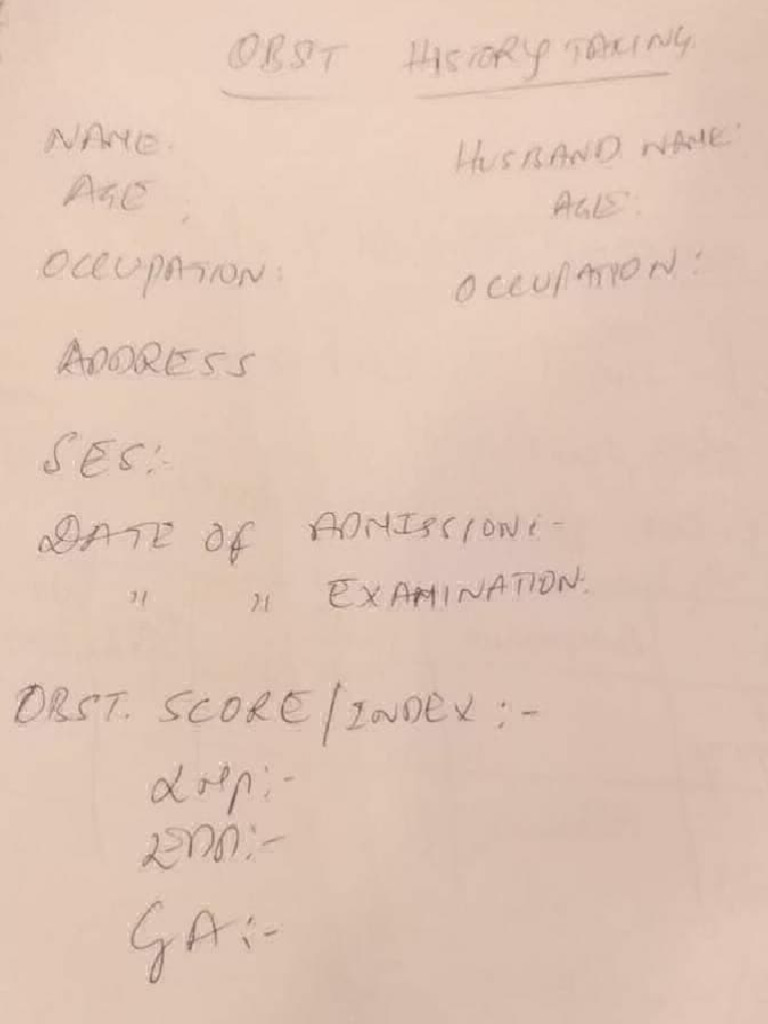 OBST HISTORY TAKING
NAME: HUSBAND NAME:
AGE : AGE:
OCCUPATION: OCCUPATION:
ADDRESS
SES:-
DATE OF ADMISSION:-
" " EXAMINATION:
OBST. SCORE/INDEX :-
LMP:-
EDD:-
GA:-